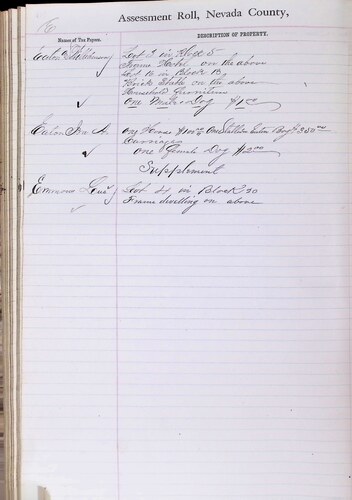 E
Assessment Roll, Nevada County,
Names of Tax Payers.
DESCRIPTION OF PROPERTY.
Eaton & Lot 2 in Block 5
Frame on the above
Lot 16 in Block 13
Brick on the above
Household Furniture
One Male Dog $1
Eaton Ira A. one Horse $100 One Stallion 250
Carriages
One Female Dog $2.00
Supplement
Emmons Lot 21 in Block 20
Frame dwelling on above